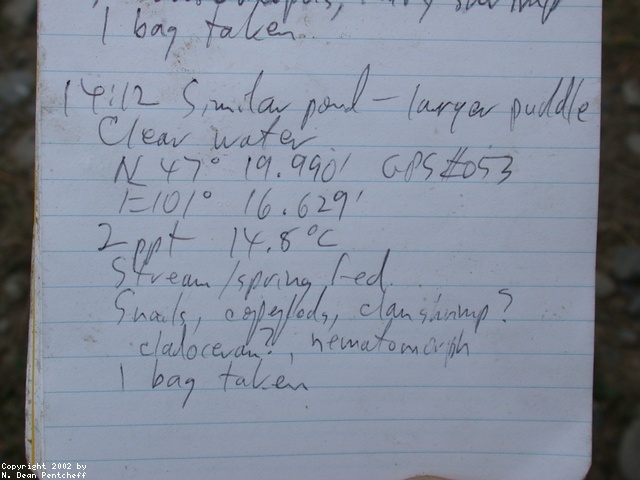 1 bag taken.
14:12 Similar pond - larger puddle
Clear water
N 47° 19.990' GPS #053
E 101° 16.629'
2 ppt 14.8°C
Stream/spring fed.
Snails, copepods, clam shrimp?
cladoceran?, nematomorph
1 bag taken
Copyright 2002 by
N. Dean Pentcheff